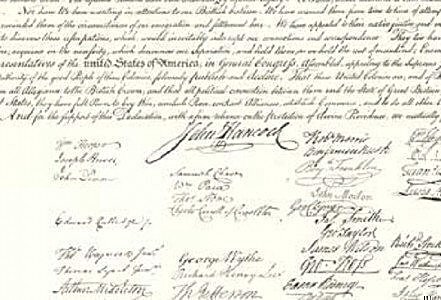 Nor have We been wanting in attentions to our British brethren. We have warned them from time to time of attempts
reminded them of the circumstances of our emigration and settlement here. We have appealed to their native justice and
to disavow these usurpations, which would inevitably interrupt our connections and correspondence. They too have
ore, acquiesce in the necessity, which denounces our Separation, and hold them, as we hold the rest of mankind, Enemies
resentatives of the united States of America, in General Congress, Assembled, appealing to the Supreme
uthority of the good People of these Colonies, solemnly publish and declare, That these United Colonies are, and of
om all Allegiance to the British Crown, and that all political connection between them and the State of Great Britain
States, they have full Power to levy War, conclude Peace, contract Alliances, establish Commerce, and to do all other
And for the support of this Declaration, with a firm reliance on the protection of divine Providence, we mutually
John Hancock
Wm Hooper
Joseph Hewes
John Penn
Edward Rutledge
Thos Heyward Junr
Thomas Lynch Junr
Arthur Middleton
Samuel Chase
Wm Paca
Thos Stone
Charles Carroll of Carrollton
George Wythe
Richard Henry Lee
Th Jefferson
Robt Morris
Benjamin Rush
Benj Franklin
John Morton
Geo Clymer
Jas Smith
Geo Taylor
James Wilson
Geo Ross
Caesar Rodney